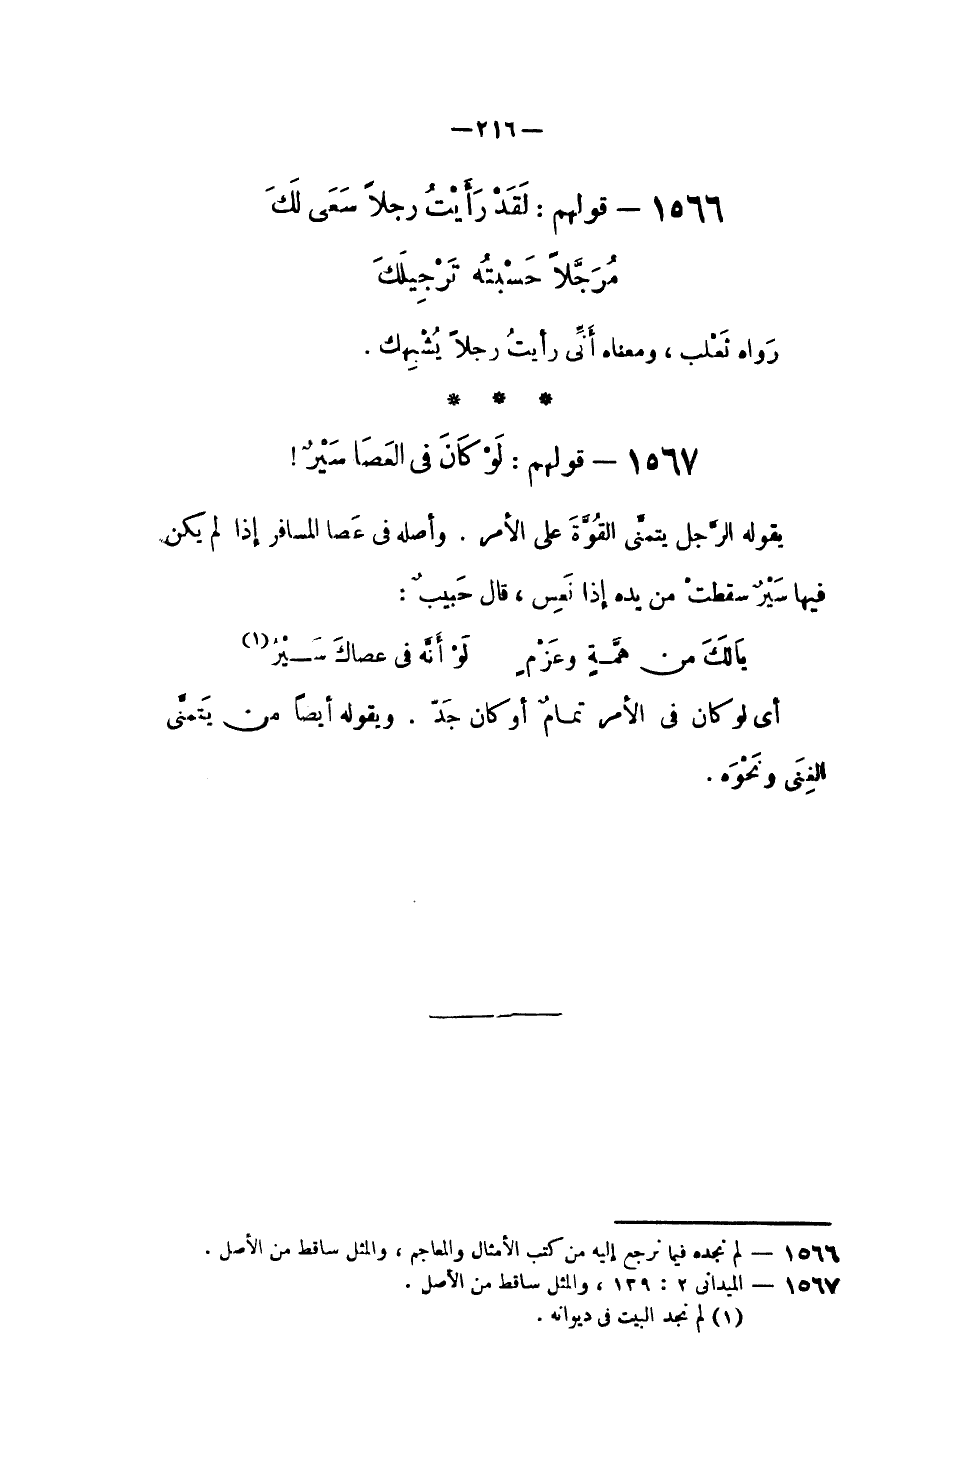 —٢١٦—
١٥٦٦ — قولهم : لَقَدْ رَأَيْتُ رجلاً سَعَى لَكَ
مُرَجَّلاً حَسْبتُه تَرْجِيلَكَ
رَواه ثَعْلب ، ومعناه أَنِّى رأيتُ رجلاً يُشْبِهك .
* * *
١٥٦٧ — قولهم : لَوْ كَانَ فى العَصَا سَيْرٌ !
يقوله الرَّجل يتمنَّى القُوَّةَ على الأمر . وأصله فى عَصا المسافر إذا لم يكن
فيها سَيْرٌ سقطتْ من يده إذا نَعِس ، قال حَبِيبٌ :
يَالَكَ من همَّـةٍ وعَزْمٍ لَوْ أَنَّه فى عصاكَ سَـيْرُ (١)
أى لو كان فى الأمر تمـامٌ أو كان جَدّ . ويقوله أيضاً من يَتمنَّى
الغِنَى ونَحْوَه .
١٥٦٦ — لم نجده فيما نرجع إليه من كتب الأمثال والمعاجم ، والمثل ساقط من الأصل .
١٥٦٧ — الميدانى ٢ : ١٣٩ ، والمثل ساقط من الأصل .
(١) لم نجد البيت فى ديوانه .